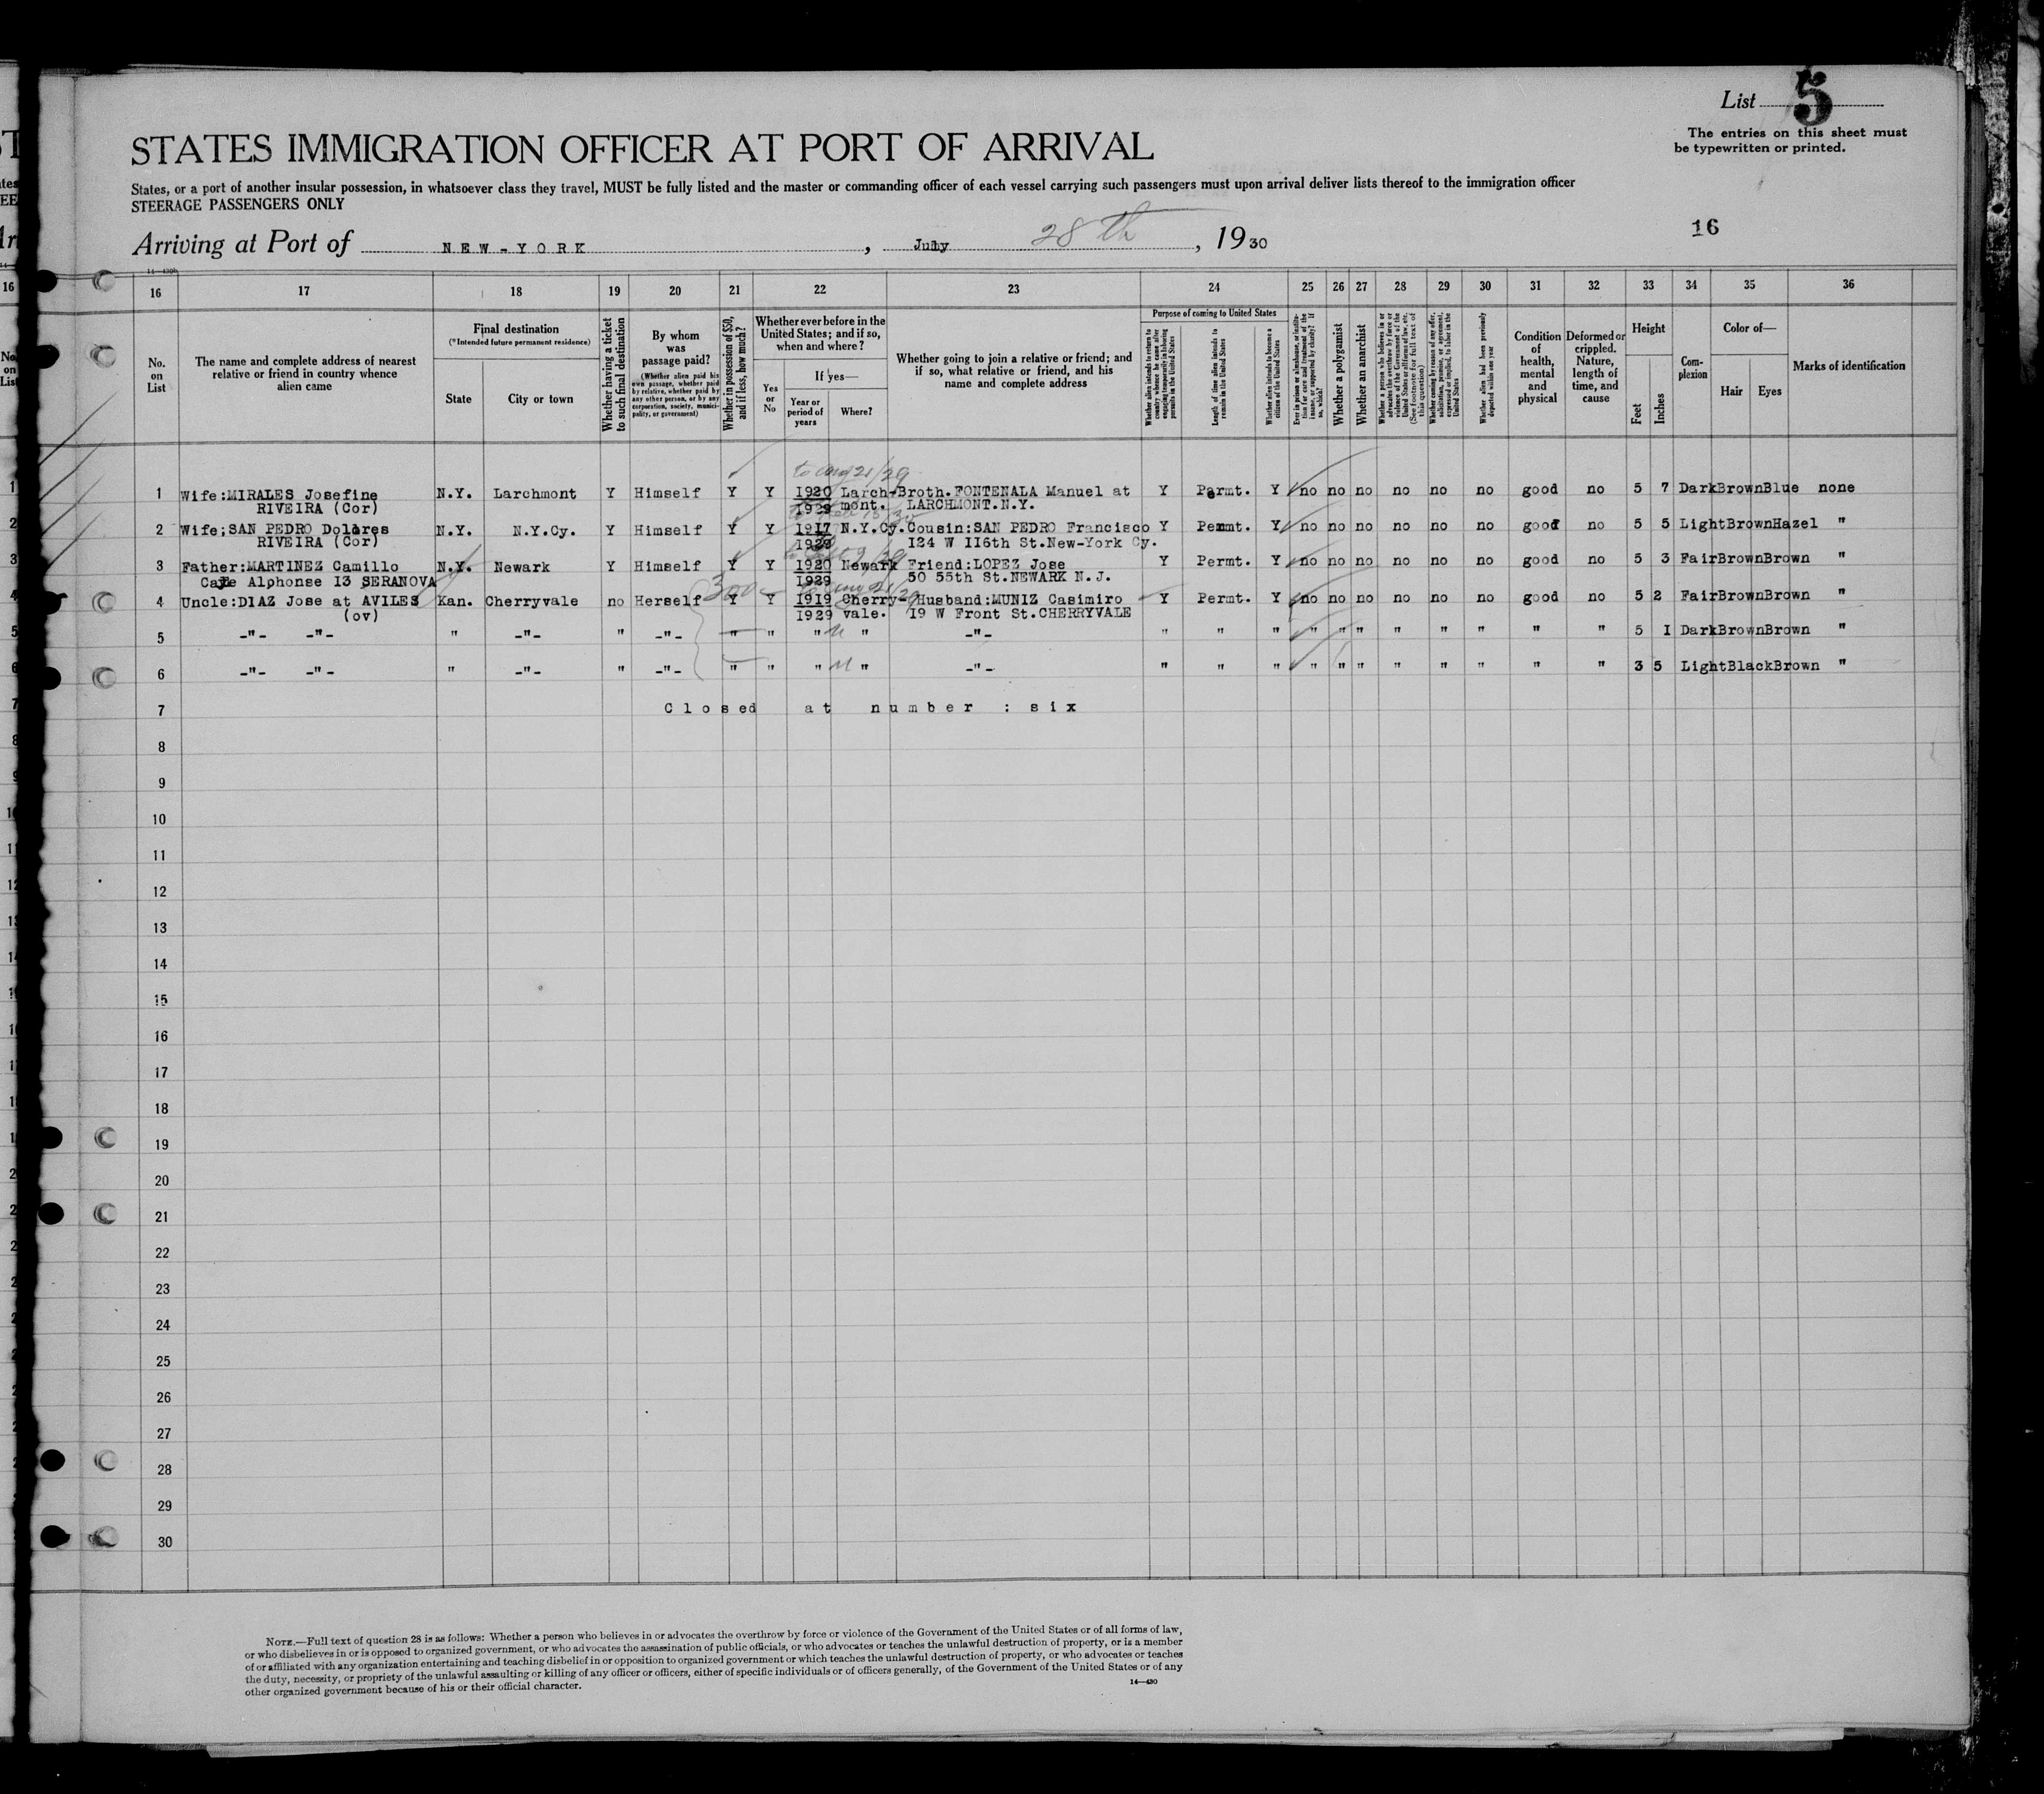 List 5
The entries on this sheet must
be typewritten or printed.
STATES IMMIGRATION OFFICER AT PORT OF ARRIVAL
States, or a port of another insular possession, in whatsoever class they travel, MUST be fully listed and the master or commanding officer of each vessel carrying such passengers must upon arrival deliver lists thereof to the immigration officer
STEERAGE PASSENGERS ONLY
16
Arriving at Port of NEW-YORK, July 28th, 1930
16 17 18 19 20 21 22 23 24 25 26 27 28 29 30 31 32 33 34 35 36
No. on List
The name and complete address of nearest relative or friend in country whence alien came
Final destination
(*Intended future permanent residence)
State
City or town
Whether having a ticket to such final destination
By whom was passage paid?
(Whether alien paid his own passage, whether paid by relative, whether paid by any other person, or by any corporation, society, municipality, or government)
Whether in possession of $50, and if less, how much?
Whether ever before in the United States; and if so, when and where?
Yes or No
If yes—
Year or period of years
Where?
Whether going to join a relative or friend; and if so, what relative or friend, and his name and complete address
Purpose of coming to United States
Whether alien intends to return to country whence he came after engaging temporarily in laboring pursuits in the United States
Length of time alien intends to remain in the United States
Whether alien intends to become a citizen of the United States
Ever in prison or almshouse, or institution for care and treatment of the insane, or supported by charity? If so, which?
Whether a polygamist
Whether an anarchist
Whether a person who believes in or advocates the overthrow by force or violence of the Government of the United States or all forms of law, etc. (See footnote for full text of this question)
Whether coming by reason of any offer, solicitation, promise, or agreement, expressed or implied, to labor in the United States
Whether alien had been previously deported within one year
Condition of health, mental and physical
Deformed or crippled. Nature, length of time, and cause
Height
Feet
Inches
Complexion
Color of—
Hair
Eyes
Marks of identification
to Aug 21/29
1 Wife:MIRALES Josefine N.Y. Larchmont Y Himself Y Y 1920 Larch- Broth.FONTENALA Manuel at Y Permt. Y no no no no no no good no 5 7 Dark Brown Blue none
RIVEIRA (Cor) 1929 mont. LARCHMONT.N.Y.
2 Wife;SAN PEDRO Dolores N.Y. N.Y.Cy. Y Himself Y Y 1917 N.Y.Cy. Cousin:SAN PEDRO Francisco Y Permt. Y no no no no no no good no 5 5 Light Brown Hazel "
RIVEIRA (Cor) 124 W 116th St.New-York Cy.
3 Father:MARTINEZ Camillo N.Y. Newark Y Himself Y Y 1920 Newark Friend:LOPEZ Jose Y Permt. Y no no no no no no good no 5 3 Fair Brown Brown "
Calle Alphonse 13 SERANOVA 1929 50 55th St.NEWARK N.J.
300
4 Uncle:DIAZ Jose at AVILES Kan. Cherryvale no Herself Y Y 1919 Cherry- Husband:MUNIZ Casimiro Y Permt. Y no no no no no no good no 5 2 Fair Brown Brown "
(ov) 1929 vale. 19 W Front St.CHERRYVALE
5 -"- -"- " -"- " -"- " " " " -"- " " " " " " " " " " " 5 1 Dark Brown Brown "
6 -"- -"- " -"- " -"- " " " " -"- " " " " " " " " " " " 3 5 Light Black Brown "
7 Closed at number : six
8
9
10
11
12
13
14
15
16
17
18
19
20
21
22
23
24
25
26
27
28
29
30
NOTE.—Full text of question 28 is as follows: Whether a person who believes in or advocates the overthrow by force or violence of the Government of the United States or of all forms of law,
or who disbelieves in or is opposed to organized government, or who advocates the assassination of public officials, or who advocates or teaches the unlawful destruction of property, or is a member
of or affiliated with any organization entertaining and teaching disbelief in or opposition to organized government or which teaches the unlawful destruction of property, or who advocates or teaches
the duty, necessity, or propriety of the unlawful assaulting or killing of any officer or officers, either of specific individuals or of officers generally, of the Government of the United States or of any
other organized government because of his or their official character.
14—430